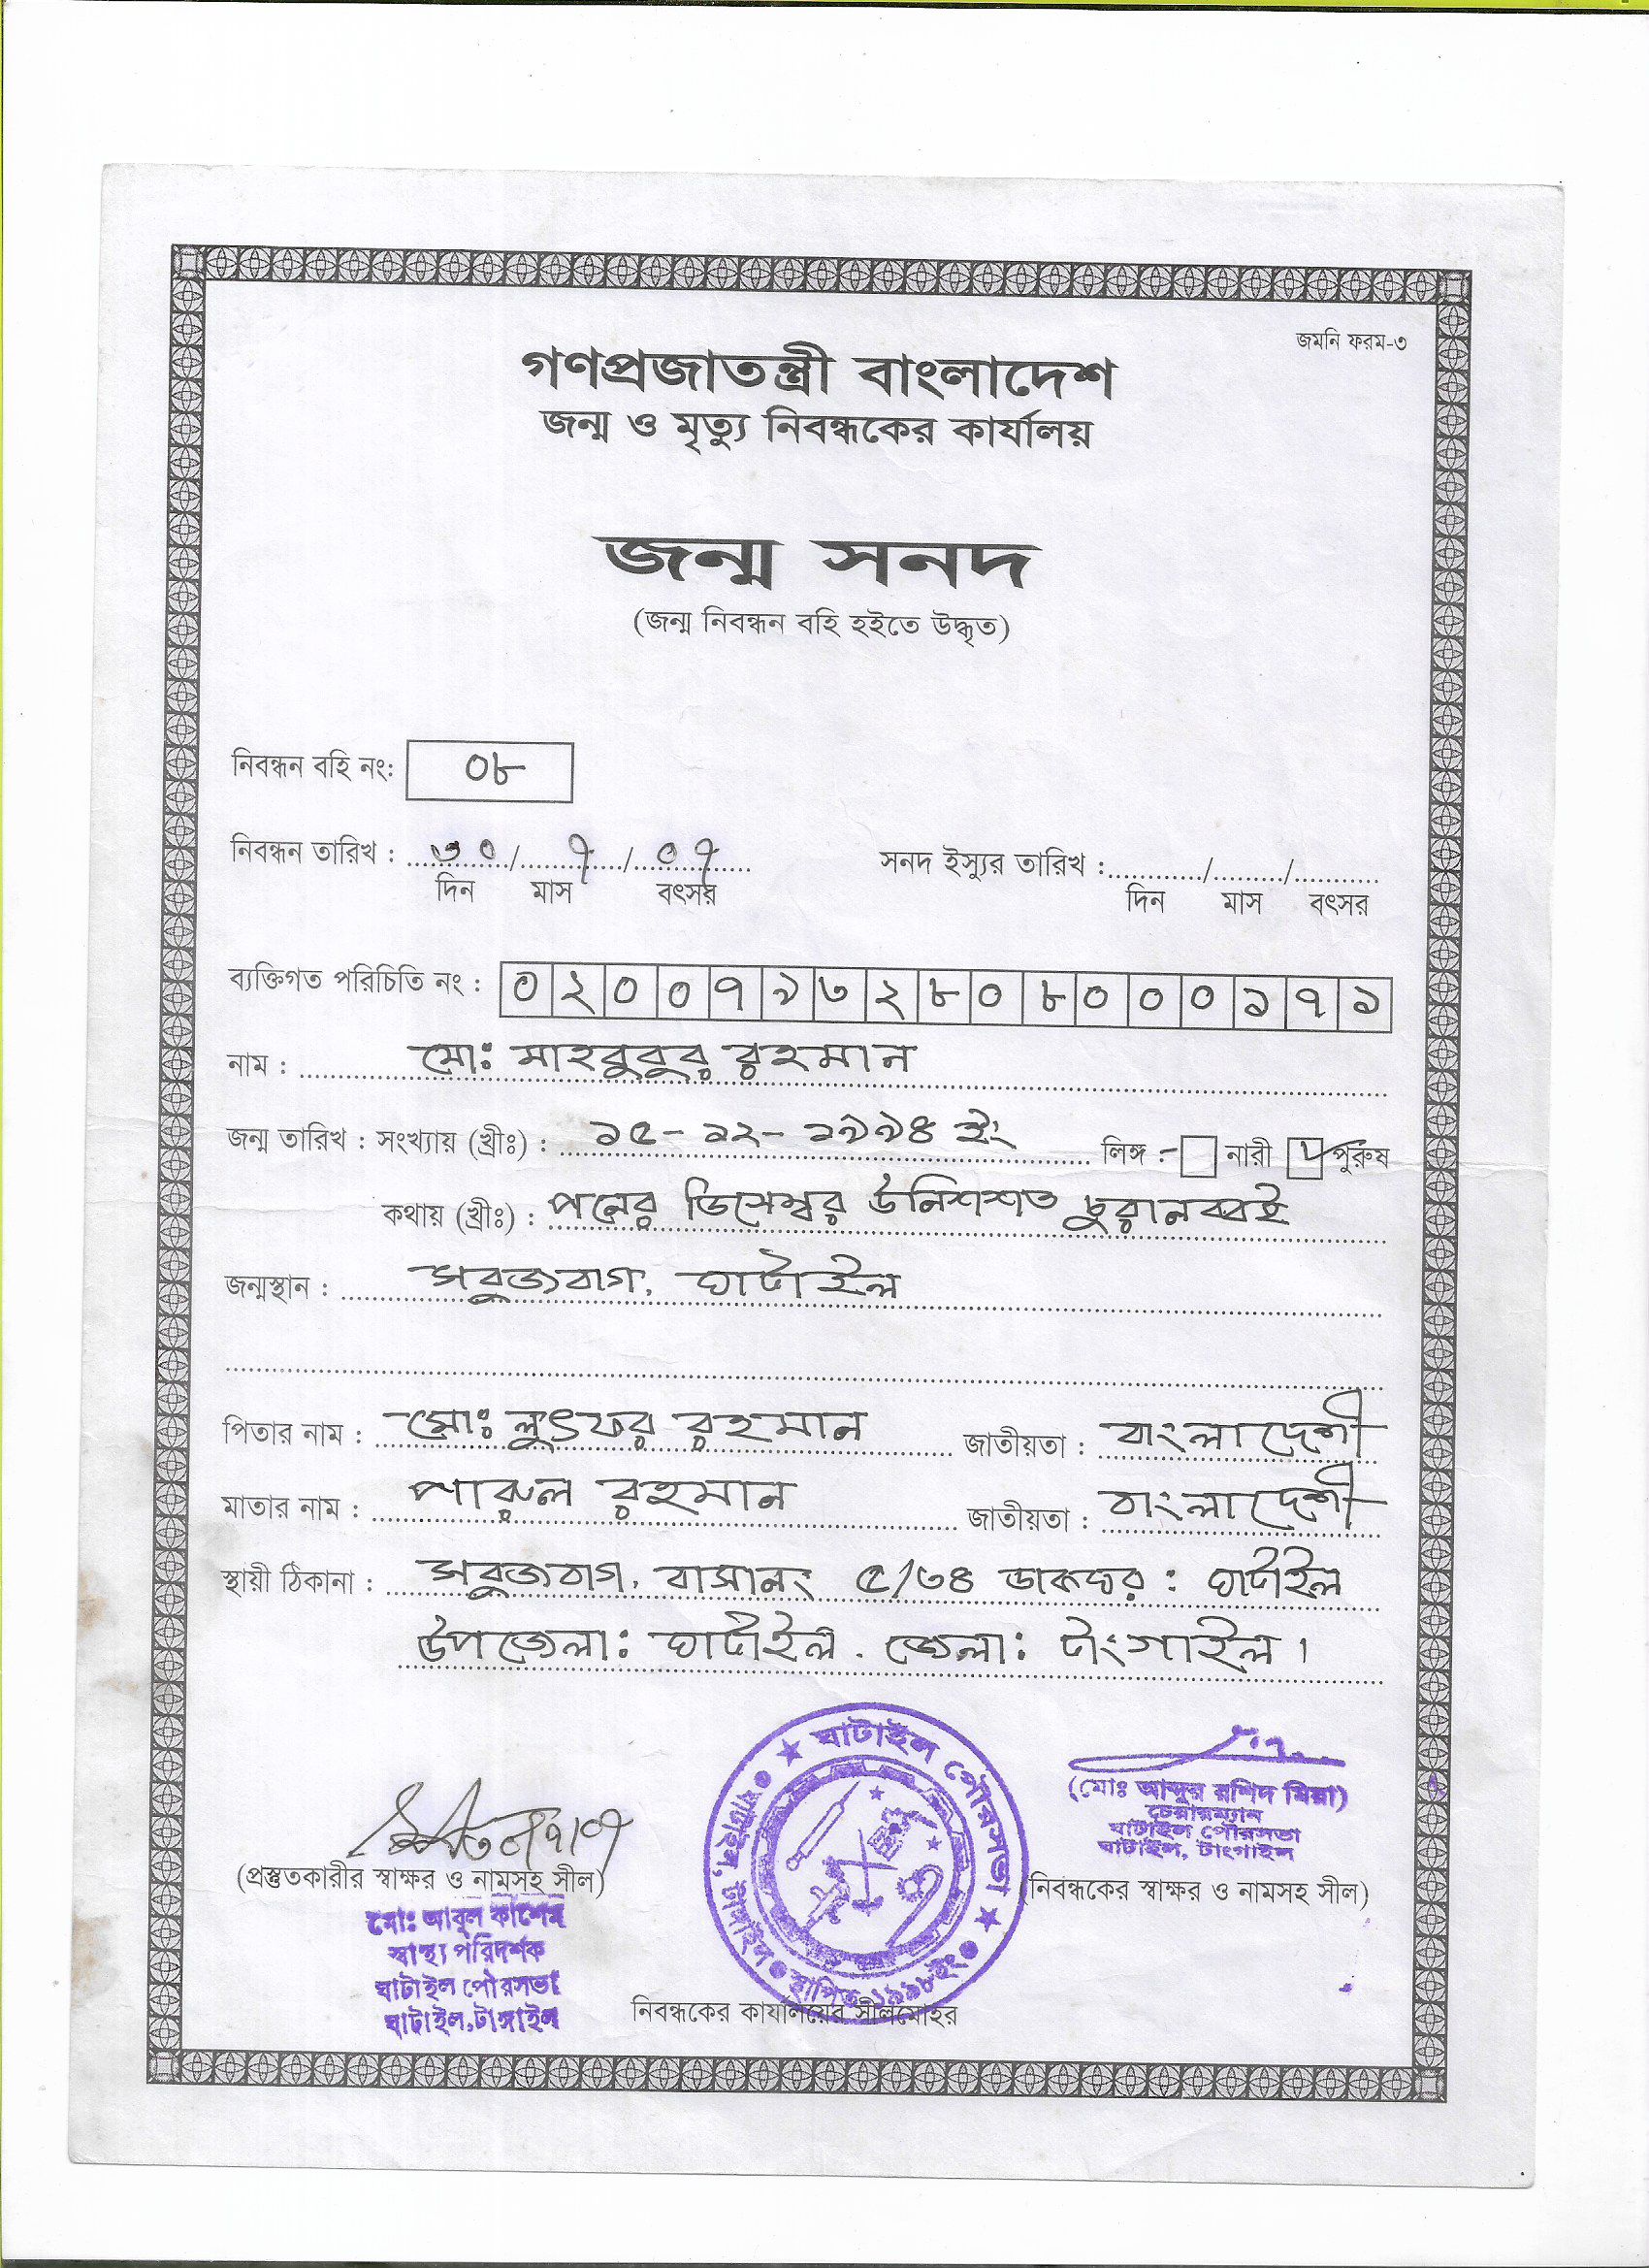 জমনি ফরম-৩
গণপ্রজাতন্ত্রী বাংলাদেশ
জন্ম ও মৃত্যু নিবন্ধকের কার্যালয়
জন্ম সনদ
(জন্ম নিবন্ধন বহি হইতে উদ্ধৃত)
নিবন্ধন বহি নং: ০৮
নিবন্ধন তারিখ : ৩০/৭/০৭ সনদ ইস্যুর তারিখ : / /
দিন মাস বৎসর দিন মাস বৎসর
ব্যক্তিগত পরিচিতি নং : ০২০০৭৯৩২৮০৮০০০১৭১
নাম : মোঃ মাহবুবুর রহমান
জন্ম তারিখ : সংখ্যায় (খ্রীঃ) : ১৫-১২-১৯৯৪ ইং লিঙ্গ :- নারী পুরুষ
কথায় (খ্রীঃ) : পনের ডিসেম্বর উনিশশত চুরানব্বই
জন্মস্থান : সবুজবাগ, ঘাটাইল
পিতার নাম : মোঃ লুৎফর রহমান জাতীয়তা : বাংলাদেশী
মাতার নাম : পারুল রহমান জাতীয়তা : বাংলাদেশী
স্থায়ী ঠিকানা : সবুজবাগ, বাসানং ৫/৩৪ ডাকঘর : ঘাটাইল
উপজেলা: ঘাটাইল. জেলা: টাংগাইল।
৩০/৭/০৭
(প্রস্তুতকারীর স্বাক্ষর ও নামসহ সীল)
মোঃ আবুল কাশেম
স্বাস্থ্য পরিদর্শক
ঘাটাইল পৌরসভা
ঘাটাইল,টাঙ্গাইল
ঘাটাইল পৌরসভা
ঘাটাইল, টাঙ্গাইল
স্থাপিত-১৯৯৮ইং
নিবন্ধকের কার্যালয়ের সীলমোহর
(মোঃ আব্দুর রশিদ মিয়া)
চেয়ারম্যান
ঘাটাইল পৌরসভা
ঘাটাইল, টাংগাইল
(নিবন্ধকের স্বাক্ষর ও নামসহ সীল)